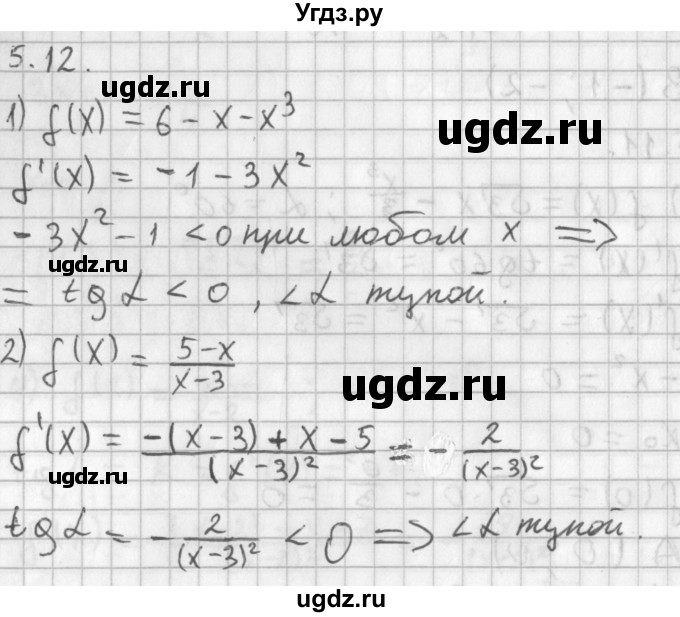 Угдз.ру
5.12.
ugdz.ru
ugdz.ru
1) f(x) = 6 - x - x³
f'(x) = -1 - 3x²
-3x² - 1 < 0 при любом x =>
ugdz.ru
= tg α < 0, <α тупой.
2) f(x) = (5-x)/(x-3)
ugdz.ru
f'(x) = (-(x-3)+x-5)/(x-3)² = - 2/(x-3)²
ugdz.ru
tg α = - 2/(x-3)² < 0 => <α тупой.
ugdz.ru
ugdz.ru